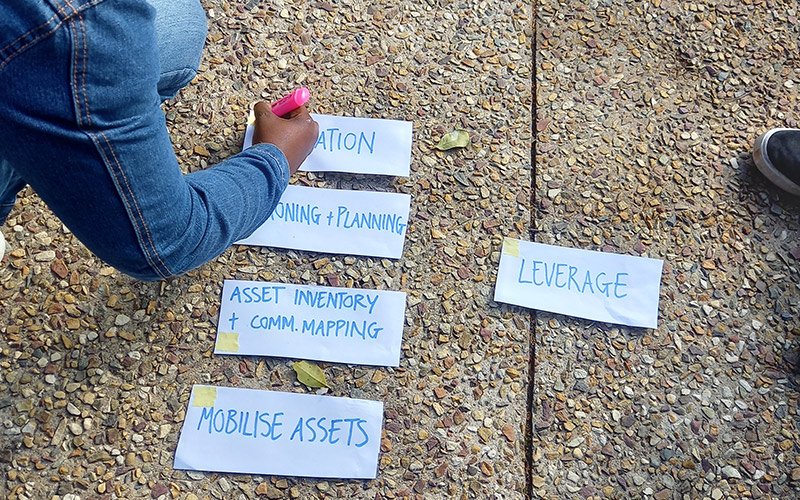 ATION
ONING + PLANNING
ASSET INVENTORY
+ COMM. MAPPING
MOBILISE ASSETS
LEVERAGE